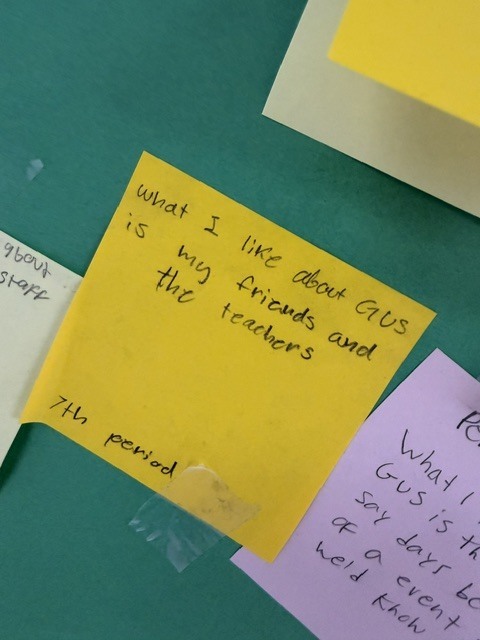 what I like about GUS
is my friends and
the teachers
7th period
about
staff
What I
GUS is th
say days be
of a event
we'd
know